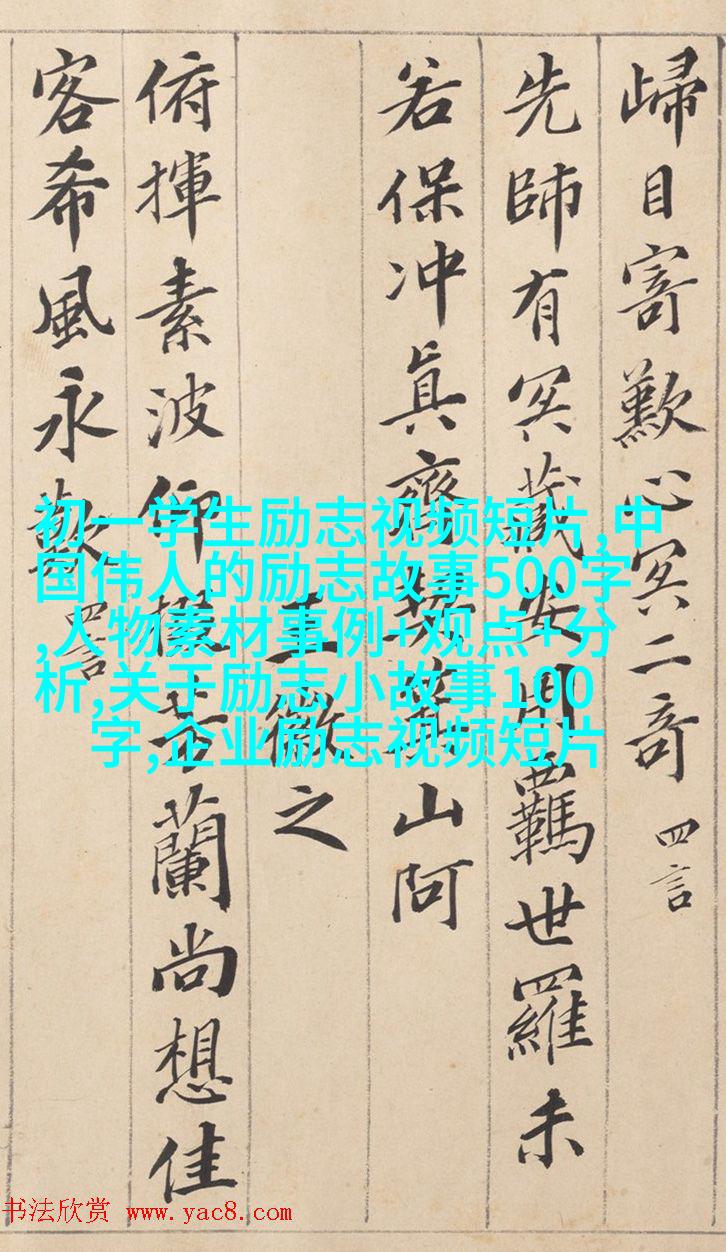 歸目寄歎心冥二奇 四言
先師有冥藏安用羈世羅未
若保冲真齊契箕山阿
王徽之
俯揮素波仰掇芳蘭尚想佳
客希風永歎 四言
初一学生励志视频短片,中
国伟人的励志故事500字
,人物素材事例+观点+分
析,关于励志小故事100
字,企业励志视频短片
书法欣赏 www.yac8.com